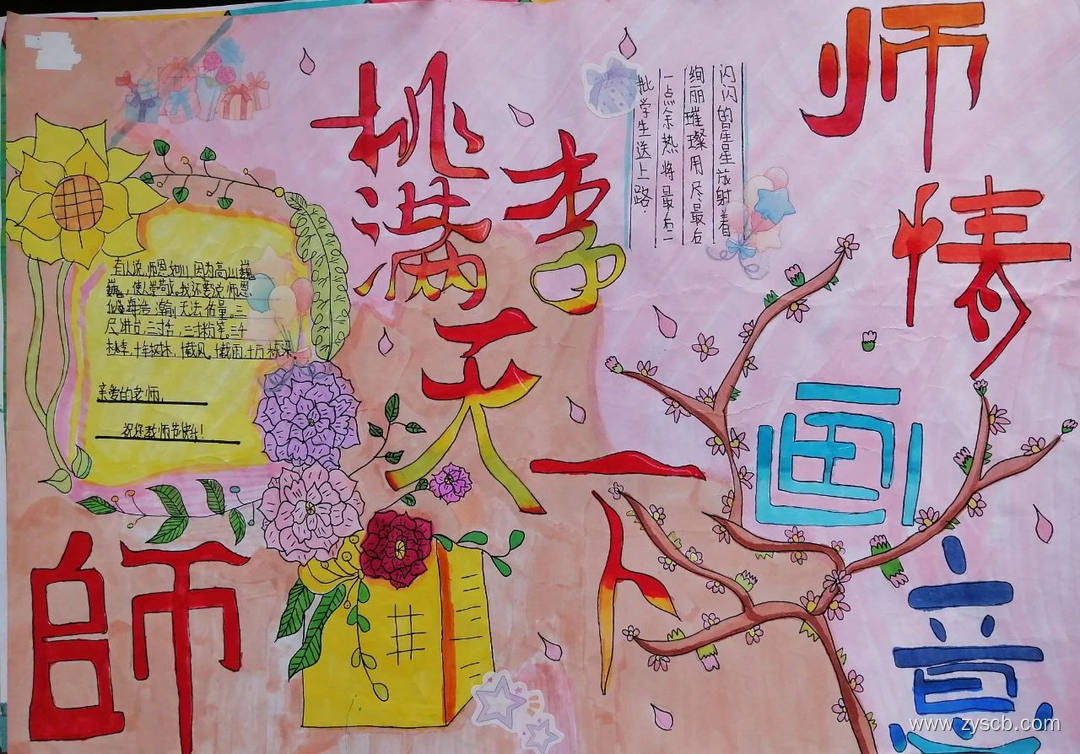 师情画意
桃李满天下
師
闪闪的星星放射着
绚丽璀璨用尽最后
一点余热将最后一
批学生送上路.
有人说,师恩如山,因为高山巍
巍,使人崇敬。我还要说,师恩
似海,
无法估量。三
尺讲台,三寸舌,三寸粉笔,三千
桃李,十年树木,十载风,十载雨,十万栋梁。
亲爱的老师,
祝您教师节快乐!
www.zyscb.com